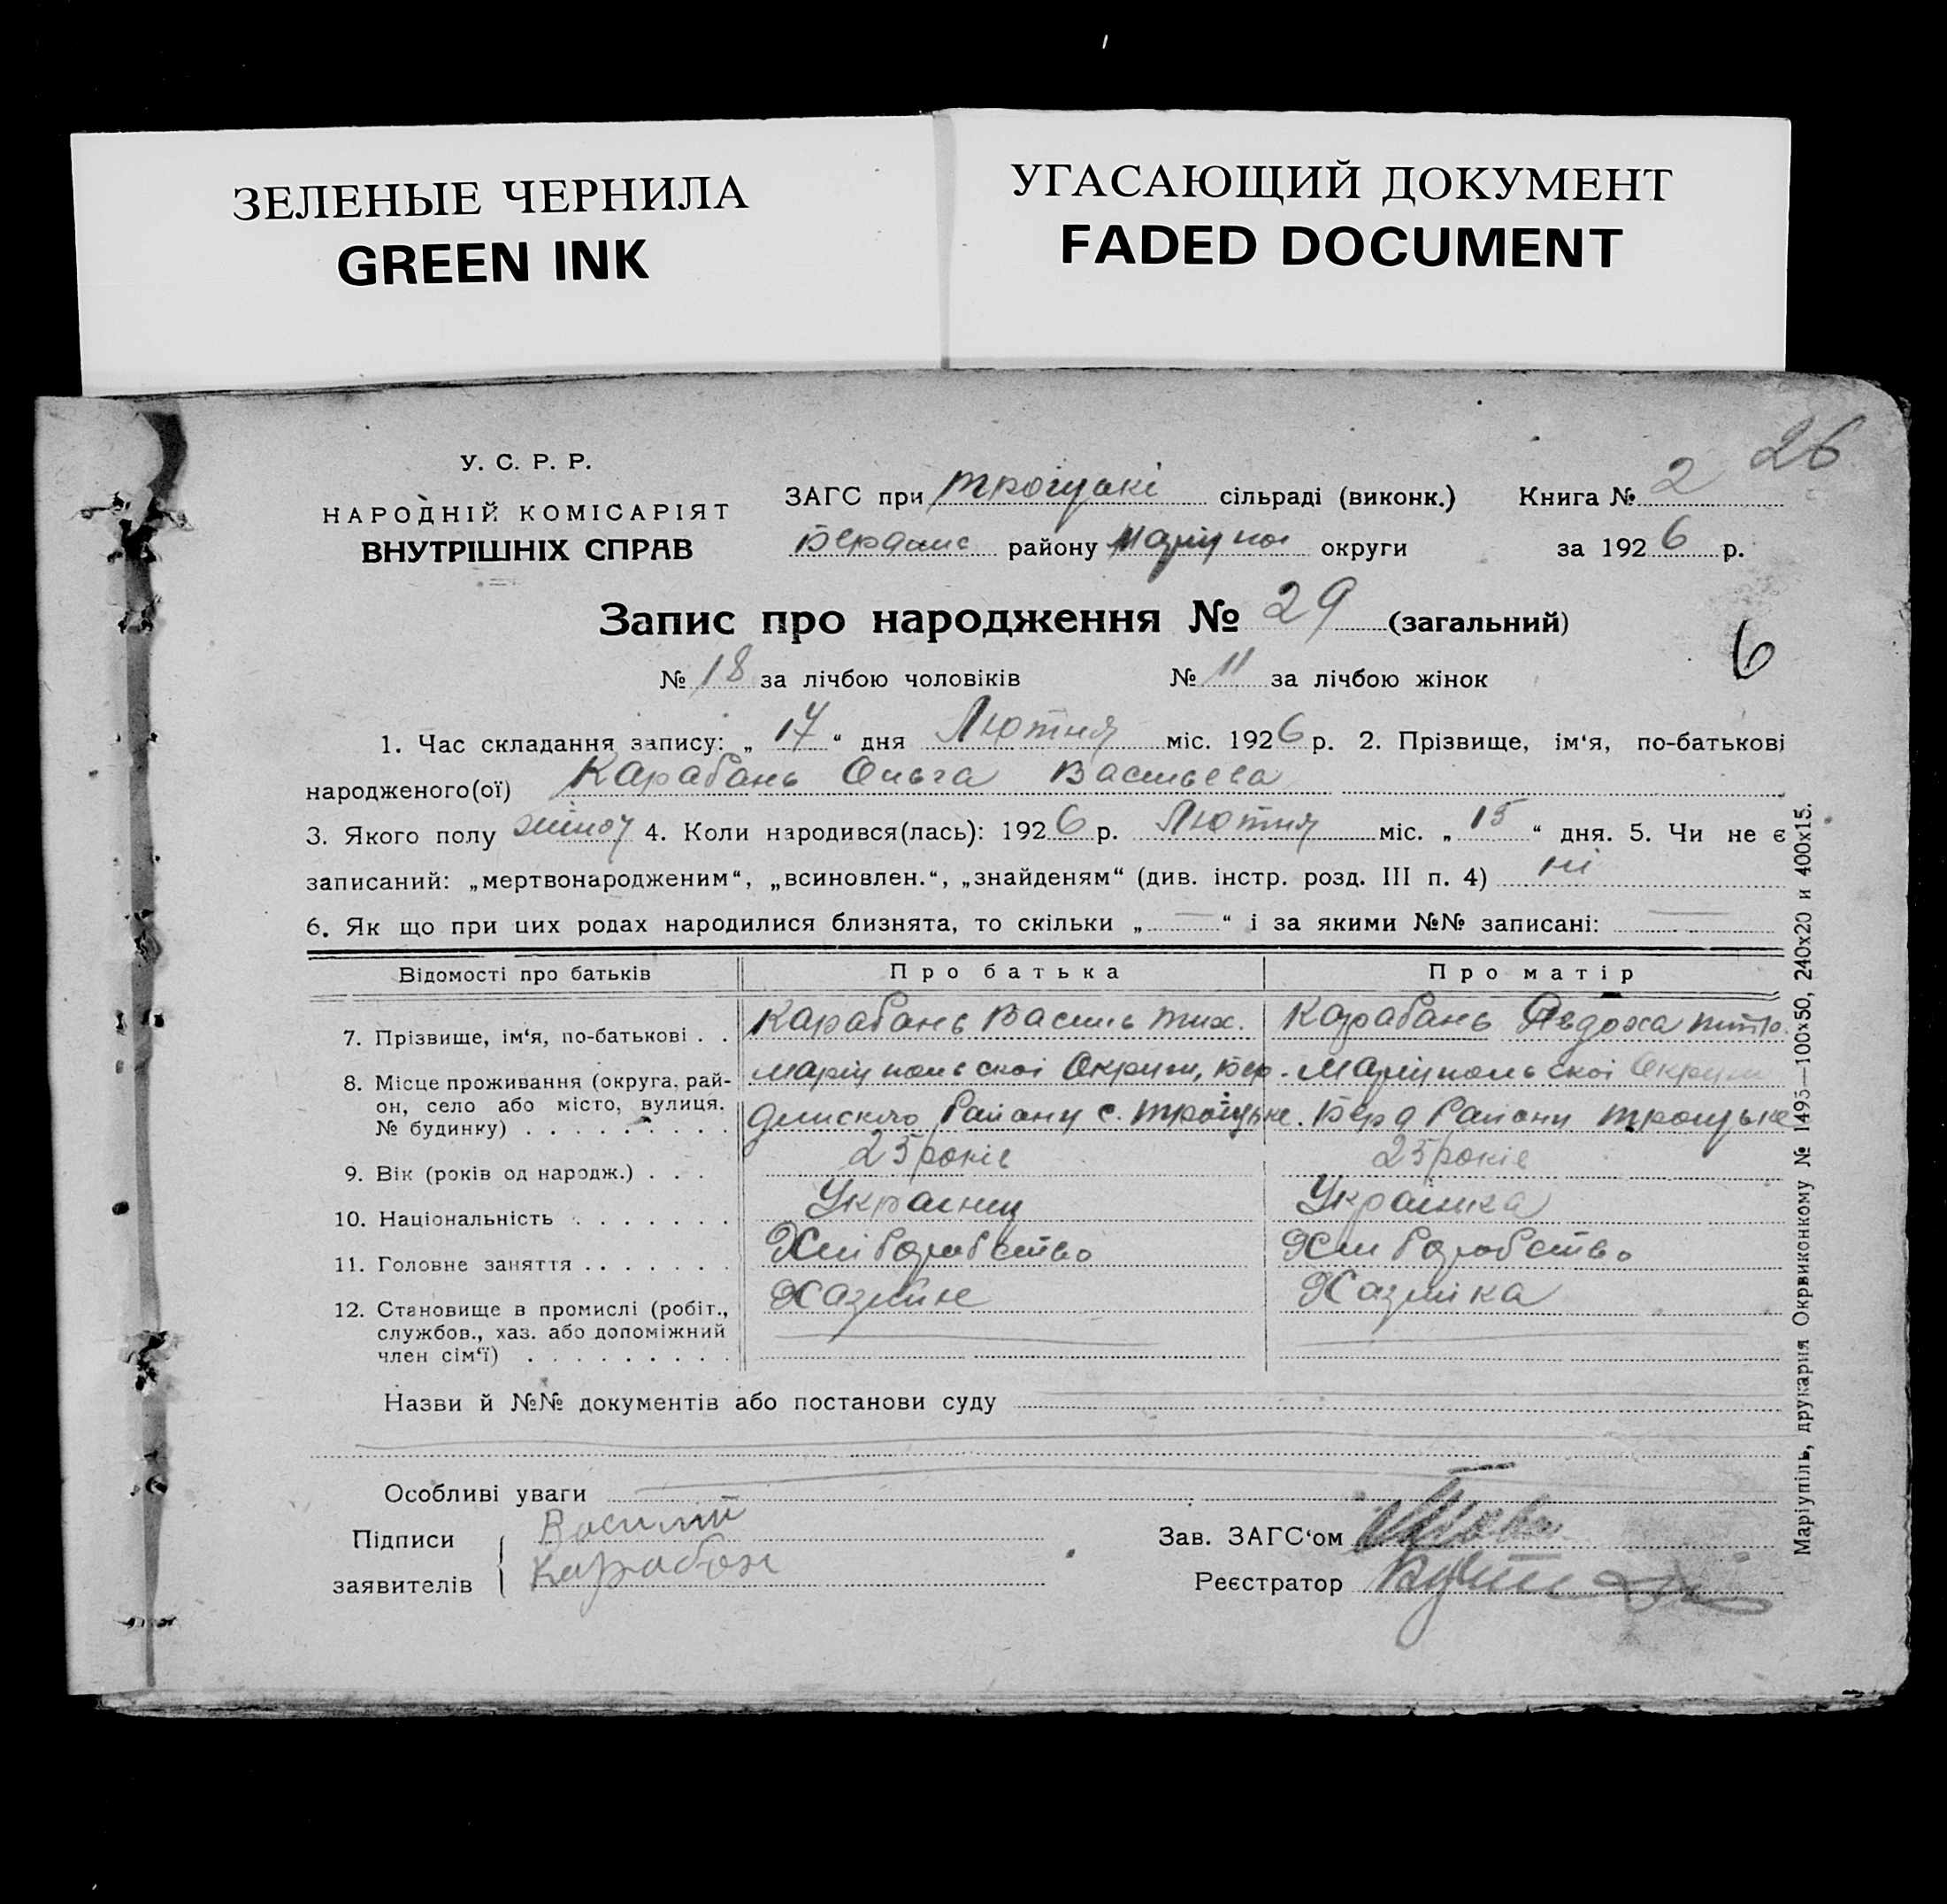 ЗЕЛЕНЫЕ ЧЕРНИЛА
GREEN INK
УГАСАЮЩИЙ ДОКУМЕНТ
FADED DOCUMENT
26
У. С. Р. Р.
НАРОДНІЙ КОМІСАРІЯТ
ВНУТРІШНІХ СПРАВ
ЗАГС при Троіцькі сільраді (виконк.) Книга № 2
Бердянс району Маріупол округи за 1926 р.
Запис про народження № 29 (загальний)
6
№ 18 за лічбою чоловіків № 11 за лічбою жінок
1. Час складання запису: „ 17 “ дня Лютня міс. 1926 р. 2. Прізвище, ім‘я, по-батькові
народженого(ої) Карабань Ольга Васильева
3. Якого полу жіноч 4. Коли народився(лась): 1926 р. Лютня міс. „ 15 “ дня. 5. Чи не є
записаний: „мертвонародженим“, „всиновлен.“, „знайденям“ (див. інстр. розд. III п. 4) ні
6. Як що при цих родах народилися близнята, то скільки „ — “ і за якими №№ записані: —
Відомості про батьків Про батька Про матір
7. Прізвище, ім‘я, по-батькові . . Карабань Василь Тих. Карабань Явдоха
8. Місце проживання (округа, рай- Маріупольскоі Округи, Бер- Маріупольскоі Округи
он, село або місто, вулиця, дянского Району с. Троіцьке. Берд Району Троіцьке
№ будинку) . . . . . . . . .
9. Вік (років од народж.) . . . 25 років 25 років
10. Національність . . . . . . . Украінец Украінка
11. Головне заняття . . . . . . . Хліборобство Хліборобство
12. Становище в промислі (робіт., Хазяін Хазяіка
службов., хаз. або допоміжний
член сім‘ї) . . . . . . . . .
Назви й №№ документів або постанови суду
Особливі уваги
Підписи Василий
заявителів Карабан
Зав. ЗАГС‘ом
Реєстратор
Маріупіль, друкарня Окрвиконкому № 1495—100х50, 240х20 и 400х15.